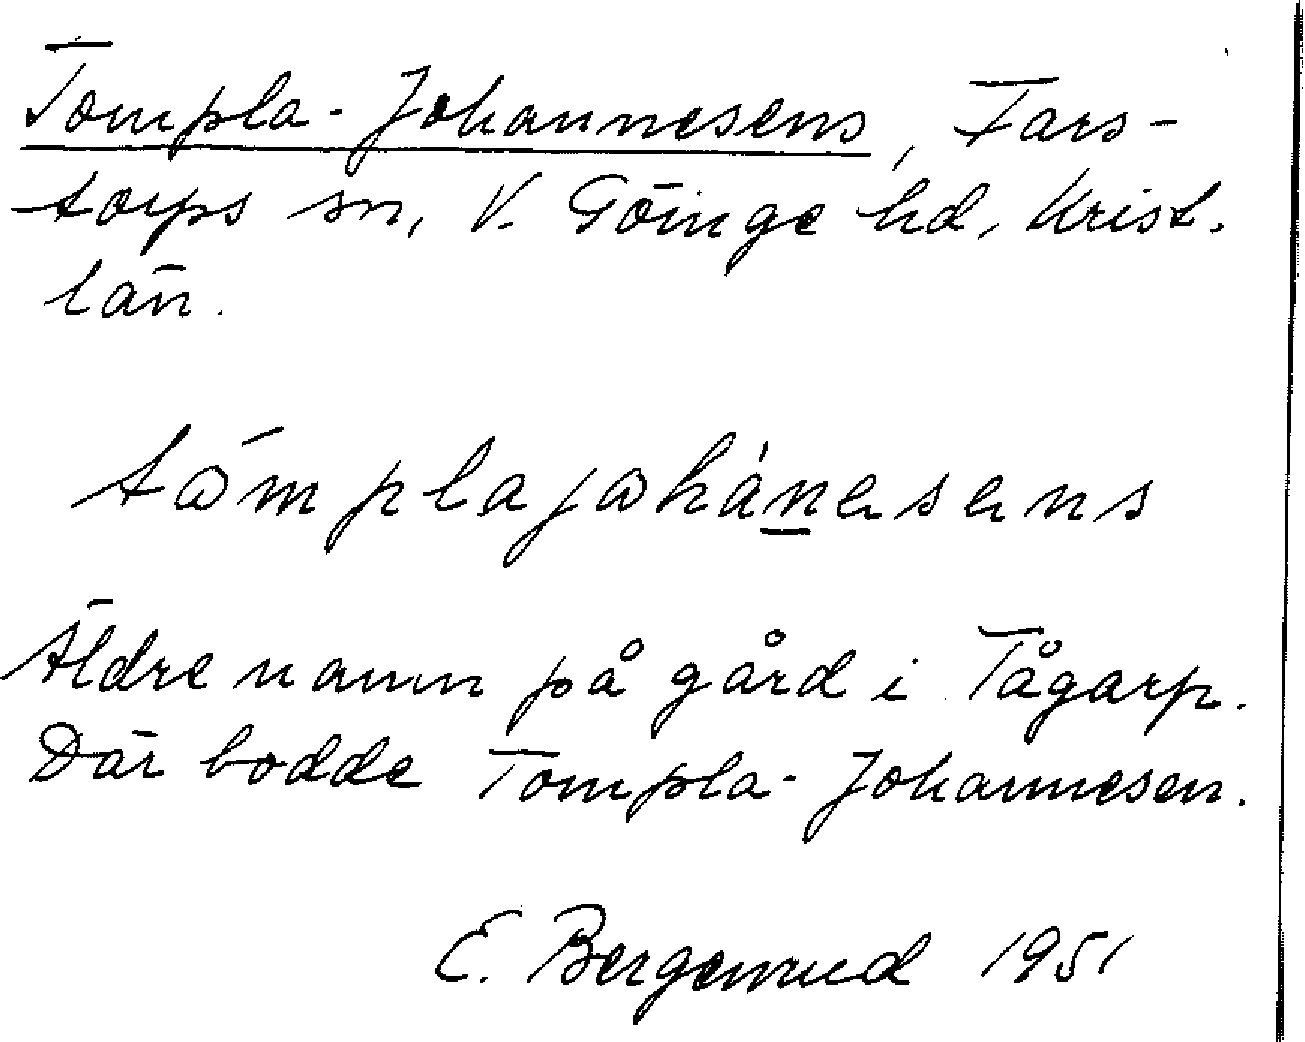 Tompla-Johannesens, Fars-
torps sn, V. Göinge hd, Krist.
län.
tómplajohánesens
Äldre namn på gård i Tågarp.
Där bodde Tompla-Johannesen.
E. Bergemrud 1951